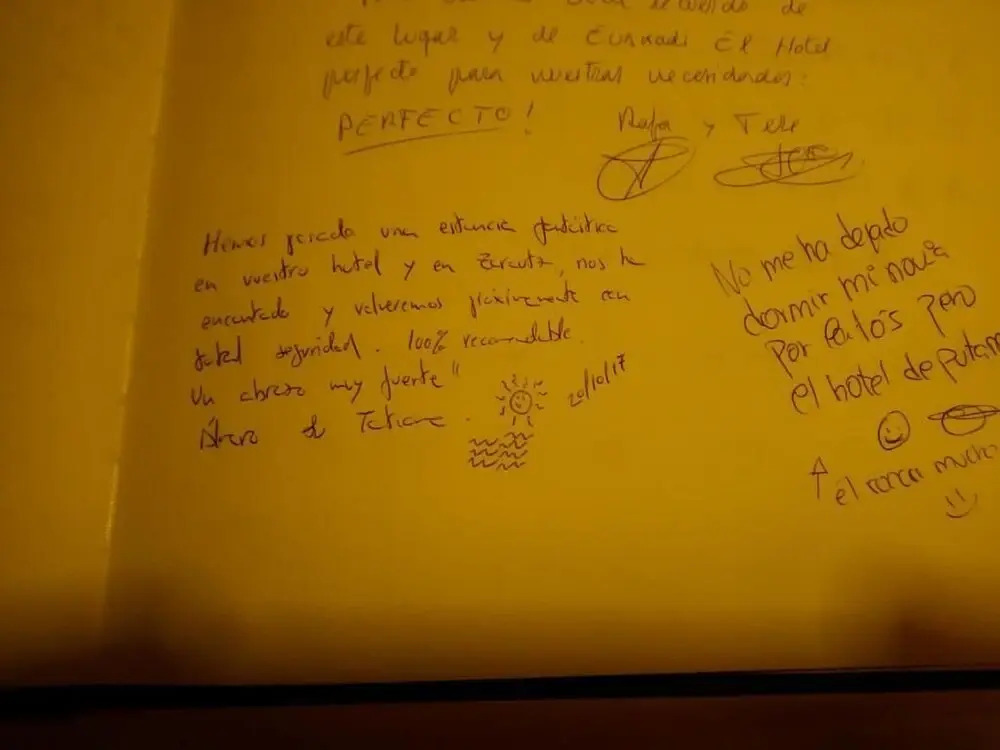 recuerdo de
este lugar y de Euskadi El Hotel
perfecto para nuestras necesidades:
PERFECTO!
Rafa y Tere
Hemos pasado una estancia fantástica
en vuestro hotel y en Zarautz, nos ha
encantado y volveremos próximamente con
total seguridad. 100% recomendable.
Un abrazo muy fuerte"
Álvaro & Tatiana.
20/10/17
No me ha dejado
dormir mi novia
por pero
el hotel de putam
él ronca mucho